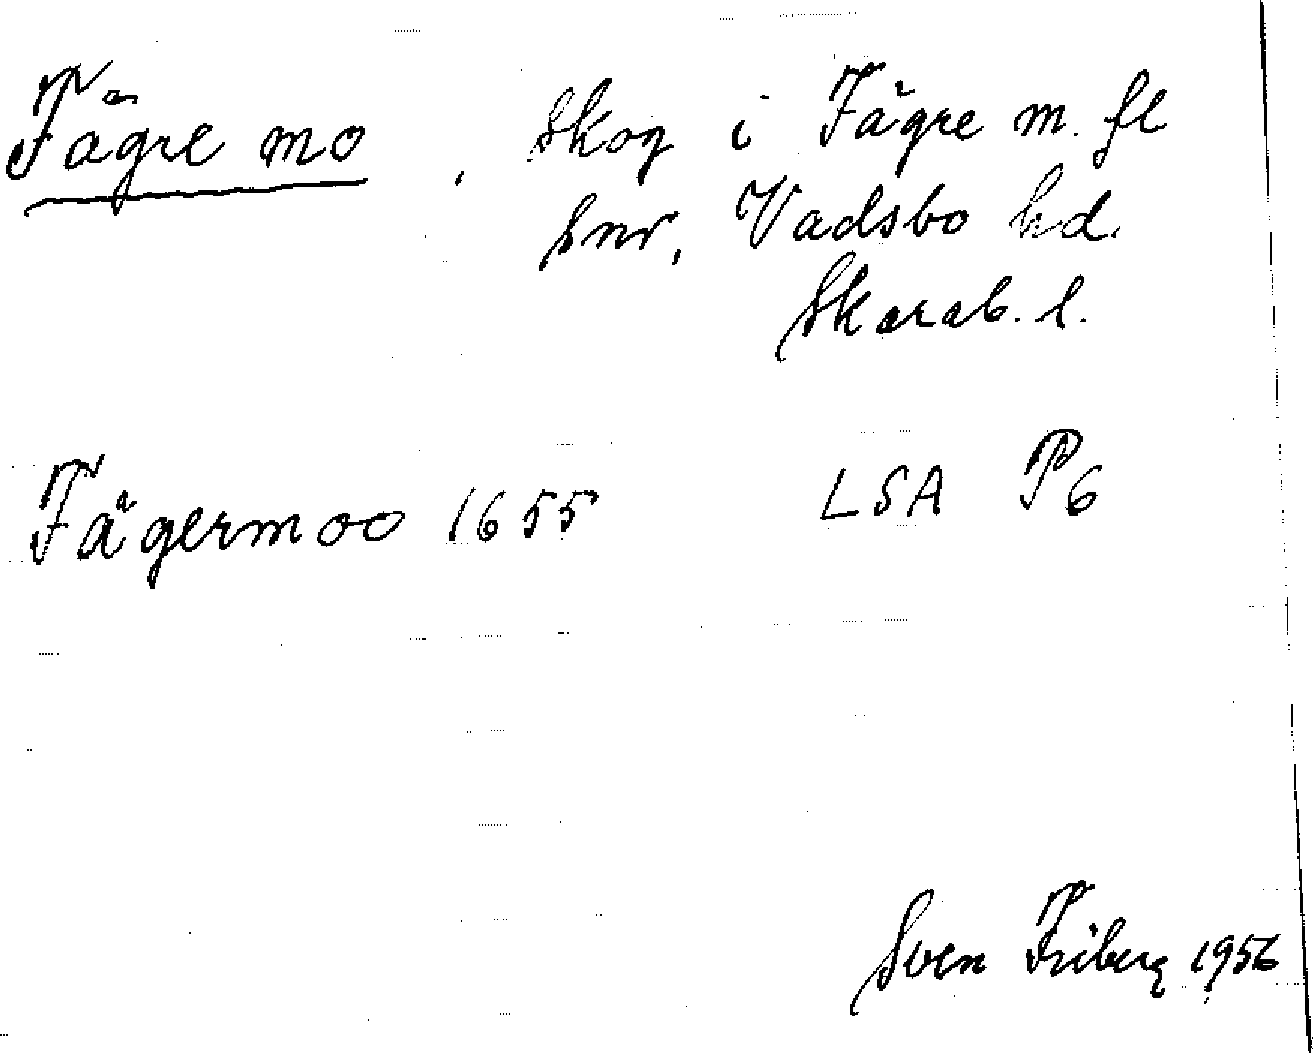 Fägre mo, skog i Fägre m. fl
snr, Vadsbo hd.
Skarab. l.
Fägermoo 1655 LSA P6
Sven Friberg 1956